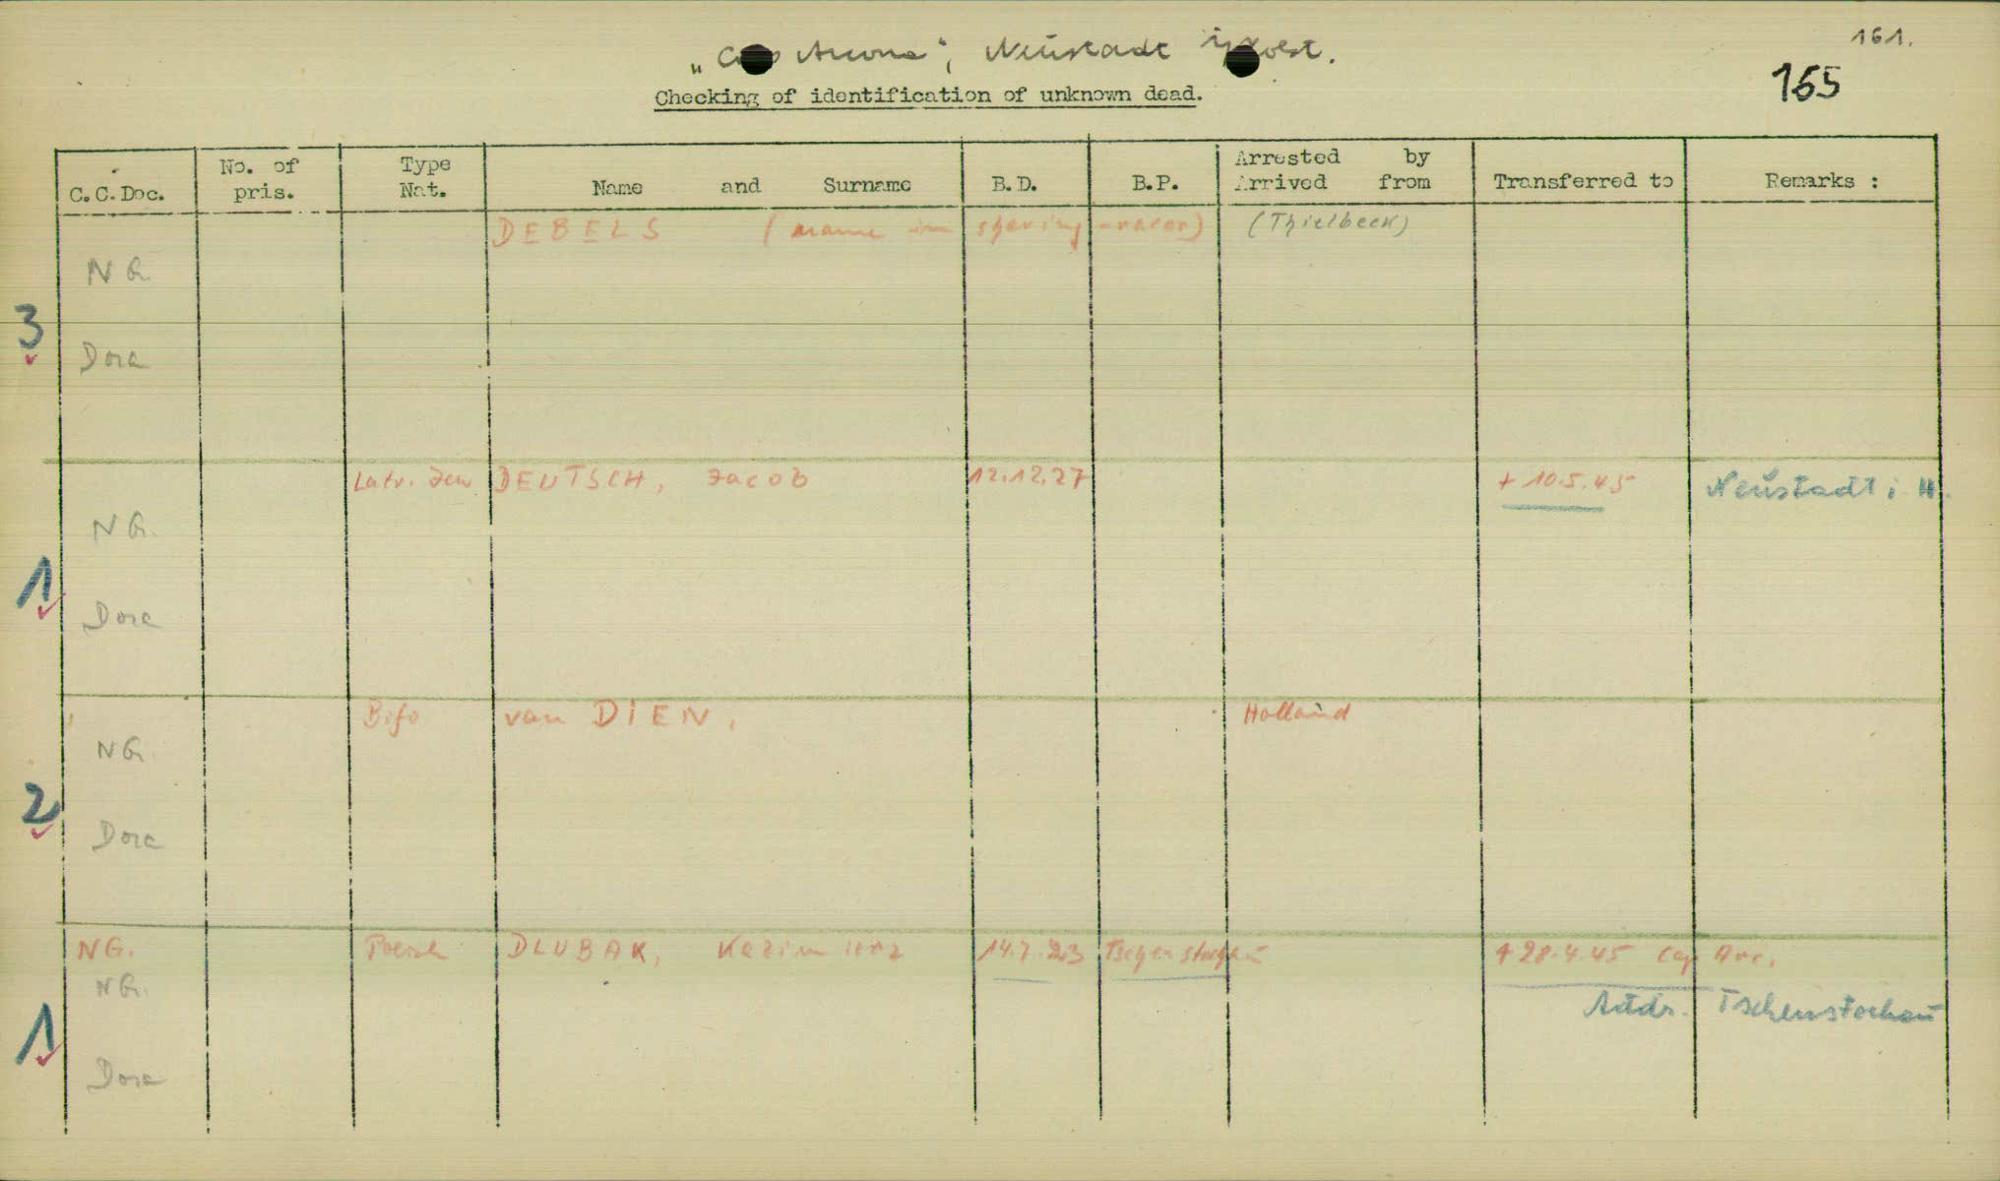 161.
„Cap Arcona", Neustadt i/Holst.
165
Checking of identification of unknown dead.
C.C.Doc. No. of pris. Type Nat. Name and Surname B.D. B.P. Arrested by Arrived from Transferred to Remarks :
DEBELS (name in shaving-racor) (Thielbeck)
NG.
3
Dora
Latv. Jew DEUTSCH, Jacob 12.12.27 + 10.5.45 Neustadt i. H.
NG.
1
Dora
Bifo van DIEN, Holland
NG.
2
Dora
NG. Polish DLUBAK, Kazimierz 14.7.23 Tschenstochau + 28.4.45 Cap Arc.
NG. Addr. Tschenstochau
1
Dora